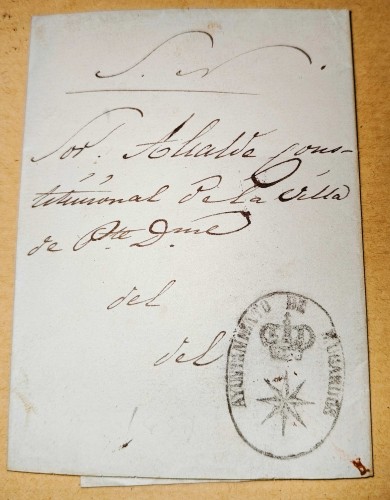 S. N.
Sor. Alcalde cons-
titucional de la villa
de Pte Dme
del
del
AYUNTAMIENTO DE MUGARDOS